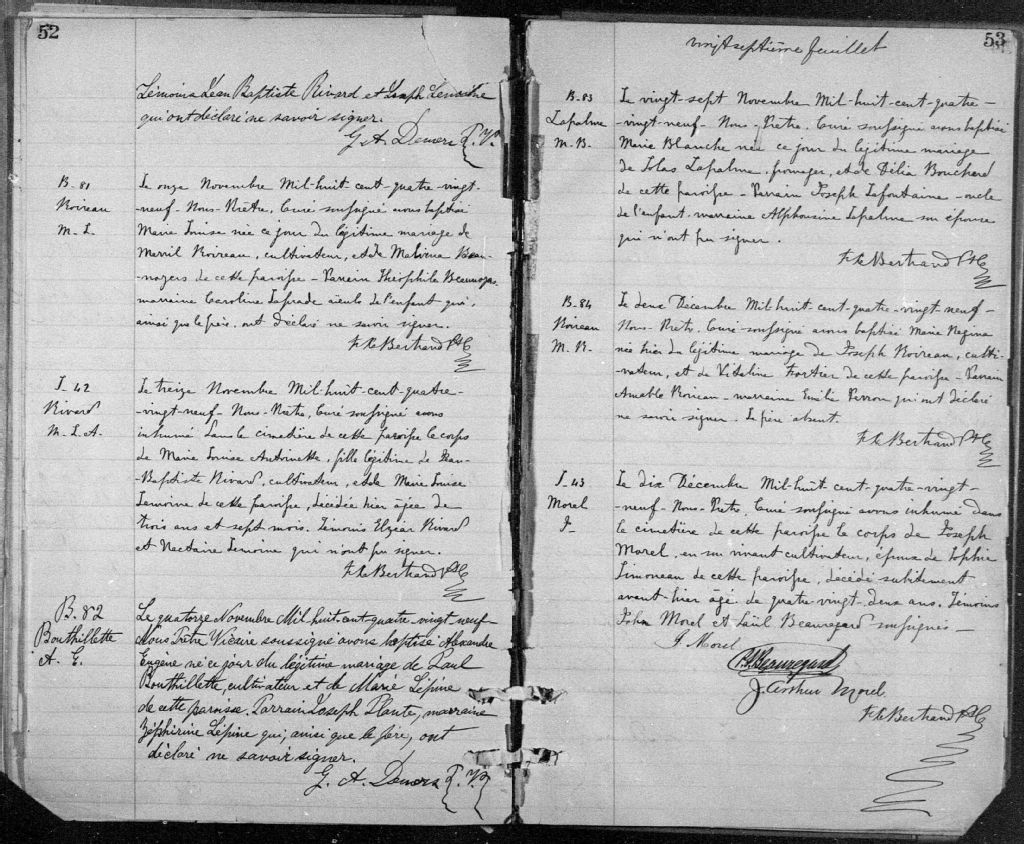 52
Témoins Jean Baptiste Rivard et Joseph Lemoine
qui ont déclaré ne savoir signer.
G. A. Demers P. V.
B-81
Noireau
M. L.
Le onze Novembre Mil-huit cent-quatre vingt-
neuf Nous Prêtre, Curé soussigné avons baptisé
Marie Louise née ce jour du légitime mariage de
Merril Noireau, cultivateur, et de Malvina Beau-
de cette paroisse - Parrain Théophile
marraine Caroline Laprade aïeule de l'enfant qui,
ainsi que le père, ont déclaré ne savoir signer.
F. X. Bertrand Ptre C
I-42
Rivard
M. L. A.
Le treize Novembre Mil-huit-cent-quatre-
-vingt-neuf- Nous-Prêtre, Curé soussigné avons
inhumé dans le cimetière de cette paroisse le corps
de Marie Louise Antoinette, fille légitime de Jean-
Baptiste Rivard, cultivateur, et de Marie Louise
Lemoine de cette paroisse, décédée hier âgée de
trois ans et sept mois. Témoins Elzéar Rivard
et Nectaire Lemoine qui n'ont pu signer.
F. X. Bertrand Ptre C
B. 82
Bouthillette
A. E.
Le quatorze Novembre Mil-huit-cent-quatre-vingt neuf
Nous Prêtre Vicaire soussigné avons baptisé Alexandre
Eugène né ce jour du légitime mariage de Paul
Bouthillette, cultivateur et de Marie Lépine
de cette paroisse. Parrain Joseph Plante, marraine
Zéphirine Lépine qui, ainsi que le père, ont
déclaré ne savoir signer.
G. A. Demers P. V.
53
vingt septième feuillet
B-83
Lapalme
M. B.
Le vingt-sept Novembre Mil-huit-cent-quatre-
-vingt-neuf- Nous-Prêtre, Curé soussigné avons baptisé
Marie Blanche née ce jour du légitime mariage
de Lapalme, fromager, et de Délia Bouchard
de cette paroisse - Parrain Joseph Lafontaine - oncle
de l'enfant marraine Alphonsine Lapalme son épouse
qui n'ont pu signer.
F. X. Bertrand Ptre C
B-84
Noireau
M. R.
Le deux Décembre Mil-huit-cent-quatre-vingt-neuf-
Nous-Prêtre, Curé-soussigné avons baptisé Marie Regina
née hier du légitime mariage de Joseph Noireau, culti-
vateur, et de Vitaline Fortier de cette paroisse - Parrain
Amable Noireau - marraine Emilie Perron qui ont déclaré
ne savoir signer. Le père absent.
F. X. Bertrand Ptre C
I-43
Morel
J-
Le dix Décembre Mil-huit cent-quatre-vingt-
-neuf- Nous-Prêtre, Curé soussigné avons inhumé dans
le cimetière de cette paroisse le corps de Joseph
Morel, en son vivant cultivateur, époux de Sophie
Simoneau de cette paroisse, décédé subitement
avant hier âgé de quatre-vingt-deux ans. Témoins
John Morel et Beauregard soussignés -
J. Morel
Beauregard
J. Arthur Morel
F. X. Bertrand Ptre C